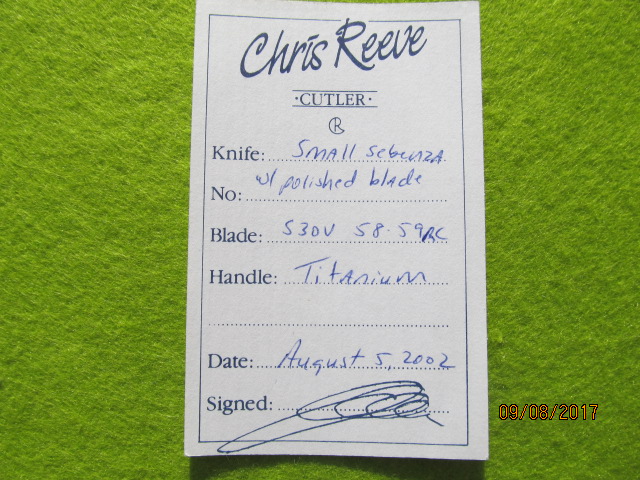 Chris Reeve
·CUTLER·
R
Knife: Small Sebenza
w/ polished blade
No:
Blade: S30V 58-59RC
Handle: Titanium
Date: August 5, 2002
Signed:
09/08/2017